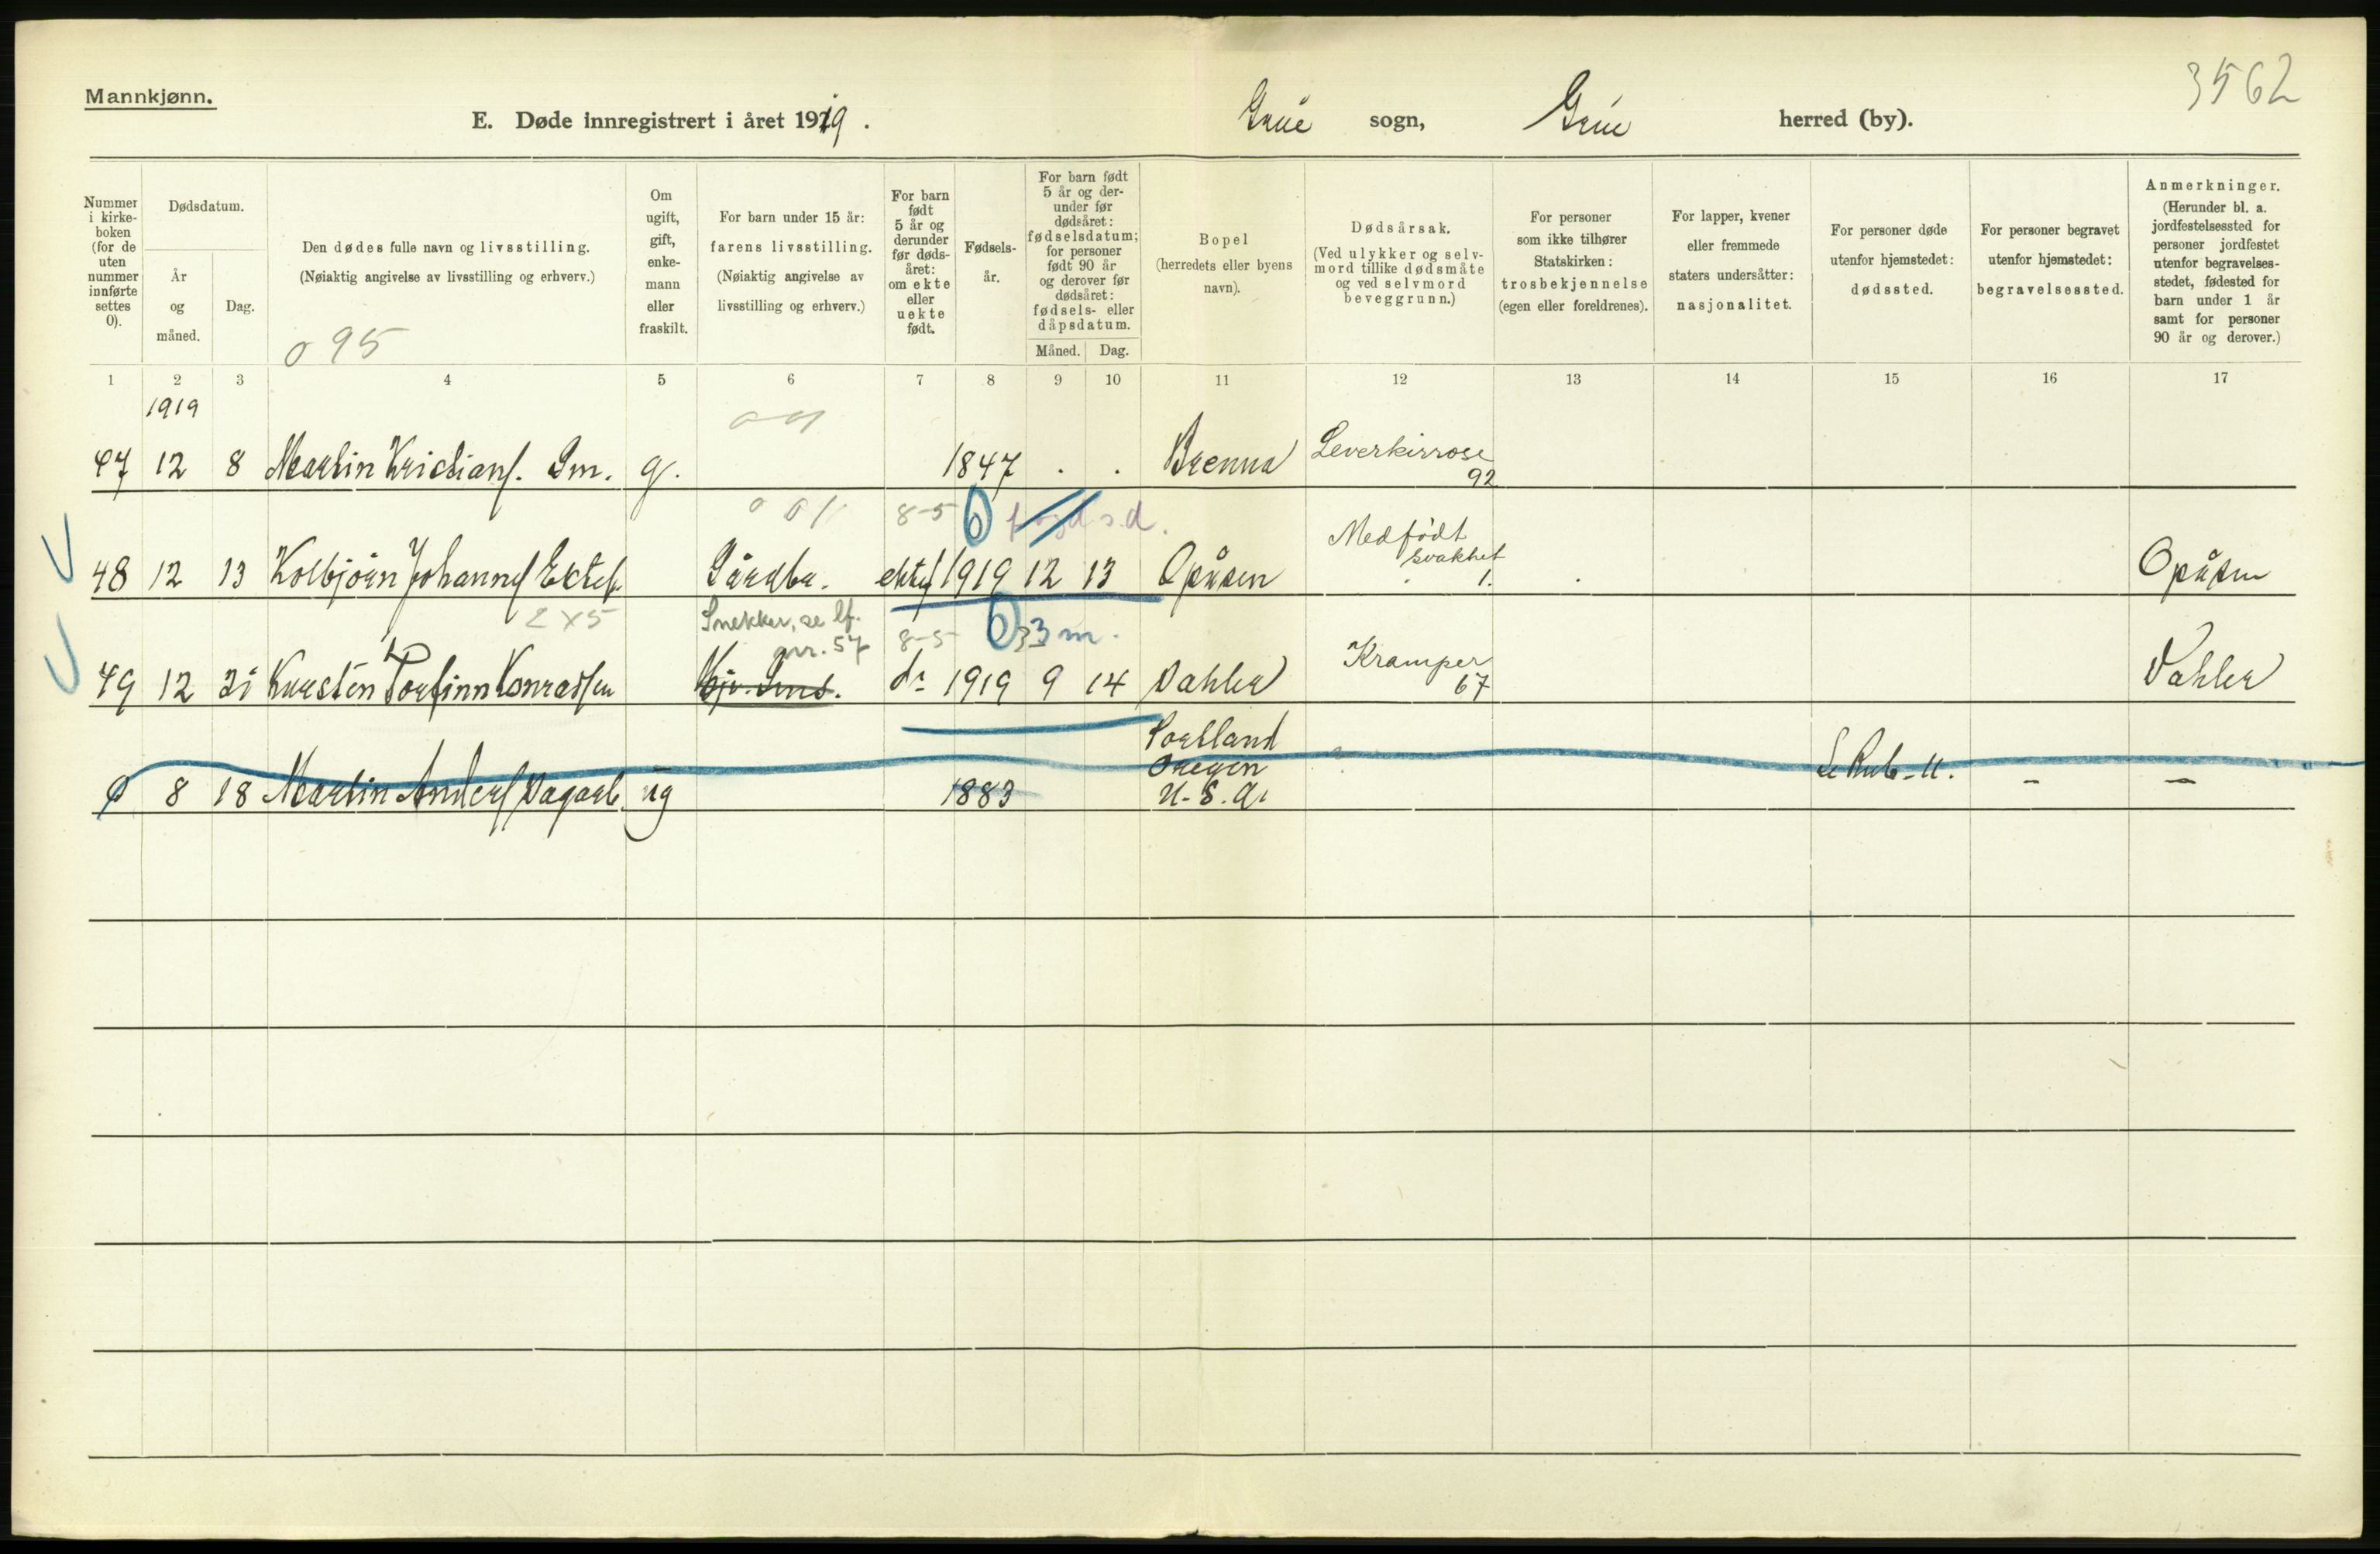 3562
Mannkjønn.
E. Døde innregistrert i året 1919.
Grue sogn, Grue herred (by).
Nummer i kirkeboken (for de uten nummer innførte settes 0).
Dødsdatum.
År og måned.
Dag.
Den dødes fulle navn og livsstilling.
(Nøiaktig angivelse av livsstilling og erhverv.)
095
Om ugift, gift, enkemann eller fraskilt.
For barn under 15 år: farens livsstilling.
(Nøiaktig angivelse av livsstilling og erhverv.)
For barn født 5 år og derunder før dødsåret: om ekte eller uekte født.
Fødselsår.
For barn født 5 år og derunder før dødsåret: fødselsdatum; for personer født 90 år og derover før dødsåret: fødsels- eller dåpsdatum.
Måned. Dag.
Bopel
(herredets eller byens navn).
Dødsårsak.
(Ved ulykker og selvmord tillike dødsmåte og ved selvmord beveggrunn.)
For personer som ikke tilhører Statskirken: trosbekjennelse (egen eller foreldrenes).
For lapper, kvener eller fremmede staters undersåtter: nasjonalitet.
For personer døde utenfor hjemstedet: dødssted.
For personer begravet utenfor hjemstedet: begravelsessted.
Anmerkninger.
(Herunder bl. a. jordfestelsessted for personer jordfestet utenfor begravelsesstedet, fødested for barn under 1 år samt for personer 90 år og derover.)
1 2 3 4 5 6 7 8 9 10 11 12 13 14 15 16 17
1919
47 12 8 Martin Kristians. Sm. g. 1847 . . Brenna Leverkirrose
92
8-5 0 s.d.
48 12 13 Kolbjørn Johannes Gårdbr. ekte 1919 12 13 Opåsen Medfødt svakhet 1. Opåsen
2x5 Snekker, se lf. nr. 57 8-5 0 33 m.
49 12 31 Torfinn Konradsen do 1919 9 14 Dahler Kramper 67 Dahler
0 8 18 Martin Anders ug 1883 Portland Oregon U.S.A. - -